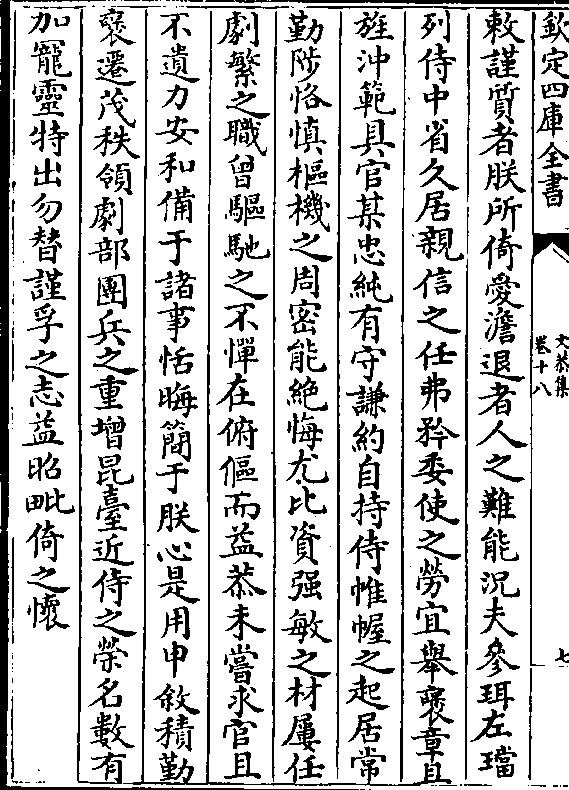 欽定四庫全書
文恭集
卷十八
七
敕謹質者朕所倚愛澹退者人之難能況夫參珥左璫
列侍中省久居親信之任弗矜委使之勞宜舉褒章且
旌沖範具官某忠純有守謙約自持侍帷幄之起居常
勤陟恪慎樞機之周密能絶悔尤比資强敏之材屢任
劇繁之職曾驅馳之不憚在俯傴而益恭未嘗求官且
不遺力安和備于諸事恬晦簡于朕心是用申敘積勤
褒遷茂秩領劇部團兵之重增昆臺近侍之榮名數有
加寵靈特出勿替謹孚之志益昭毗倚之懷